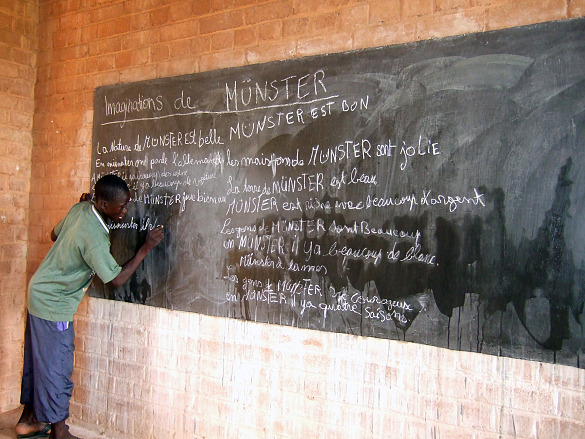 Imaginations de MÜNSTER
La Nature de MÜNSTER Est belle
MÜNSTER EST BON
En on parle l'allemand
les maisons de MÜNSTER sont jolie
il y a beaucoup de voiture
de MÜNSTER que bien
La terre de MÜNSTER est beau
MÜNSTER est avec beaucoup d'argent
Les gens de MÜNSTER sont Beaucoup
en MÜNSTER il y a beaucoup de blanc.
Münster
Les gens de MÜNSTER courageux
en MÜNSTER il y a quatre saisons